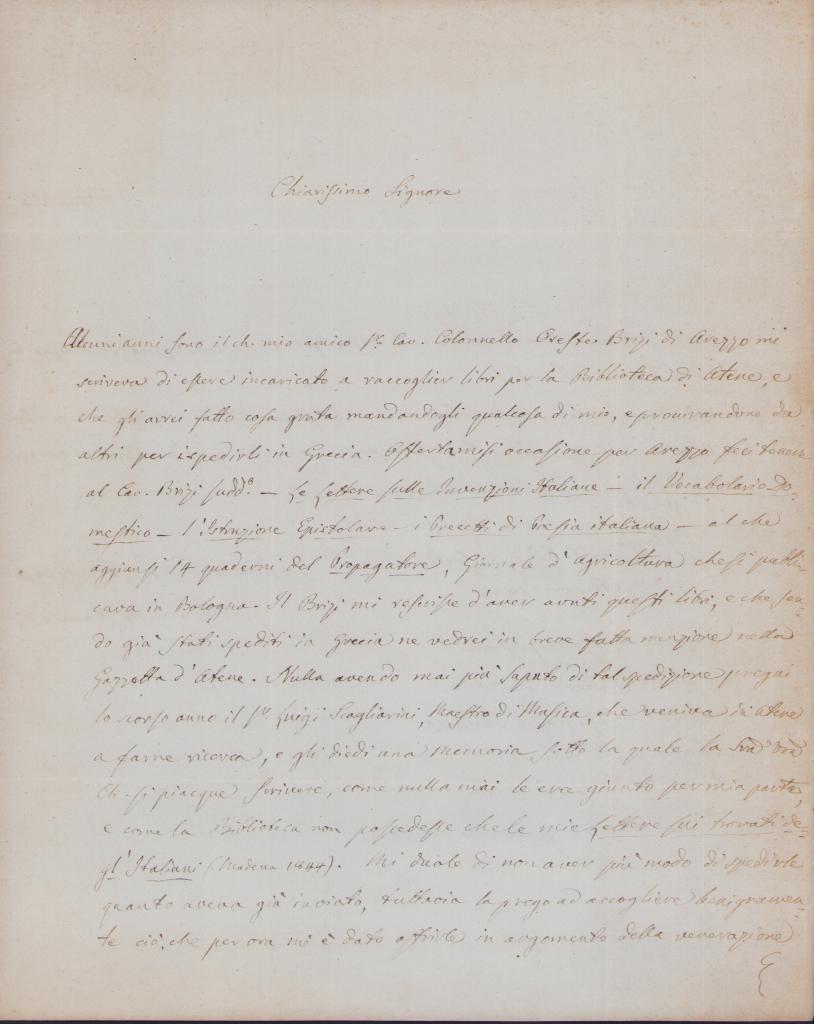 Chiarissimo Signore
Alcuni anni sono il ch. mio amico Sr. Cav. Colonnello Oreste Brizi di Arezzo mi
scriveva di essere incaricato a raccoglier libri per la Biblioteca di Atene, e
che gli avrei fatto cosa grata mandandogli qualcosa di mio, e procurandone da
altri per ispedirli in Grecia. Offertamisi occasione per Arezzo feci tenere
al Cav. Brizi sudd.o — Le Lettere sulle Invenzioni Italiane — il Vocabolario Do-
mestico — l'Istruzione Epistolare — i Precetti di Poesia italiana — al che
aggiunsi 14 quaderni del Propagatore, Giornale d'Agricoltura che si pubbli-
cava in Bologna. Il Brizi mi rescrisse d'aver avuti questi libri, e che sen-
do già stati spediti in Grecia ne vedrei in breve fatta menzione nella
Gazzetta d'Atene. Nulla avendo mai più saputo di tal spedizione pregai
lo scorso anno il Sr. Luigi Scagliarini, Maestro di Musica, che veniva in Atene
a farne ricerca, e gli diedi una memoria, sotto la quale la
Ch. si piacque scrivere, come nulla mai le era giunto per mia parte,
e come la Biblioteca non possedesse che le mie Lettere sui trovati de-
gl'Italiani (Modena 1844). Mi duole di non aver più modo di spedirle
quanto aveva già inviato, tuttavia la prego ad accogliere benignamen-
te ciò, che per ora mi è dato offrirle in argomento della venerazione